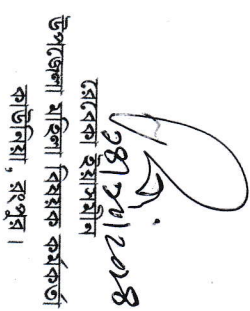 রেবেকা ইয়াসমিন
উপজেলা মহিলা বিষয়ক কর্মকর্তা
কাউনিয়া, রংপুর।